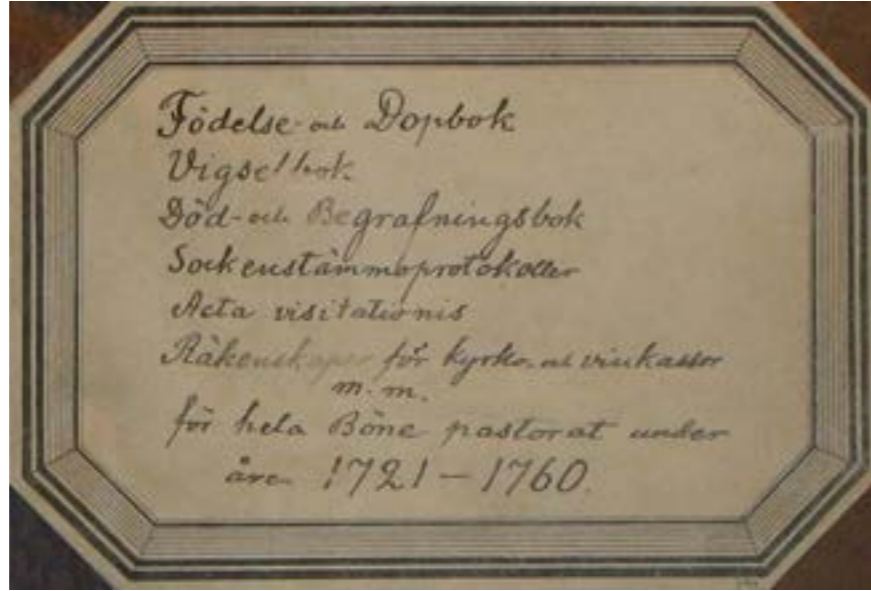 Födelse- och Dopbok
Vigselbok
Död- och Begrafningsbok
Sockenstämmoprotokoller
Acta visitationis
Räkenskaper för kyrko- och vinkassor
m. m.
för hela Böne pastorat under
åren 1721 – 1760.